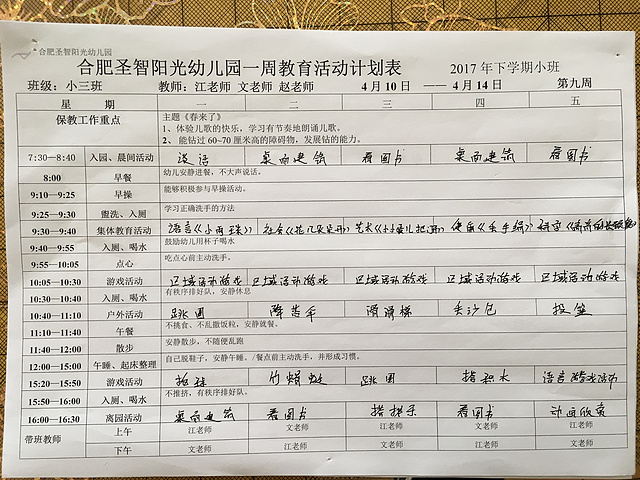 合肥圣智阳光幼儿园
合肥圣智阳光幼儿园一周教育活动计划表 2017年下学期小班
班级：小三班 教师：江老师 文老师 赵老师 4月10日 —— 4月14日 第九周
星 期 一 二 三 四 五
保教工作重点 主题《春来了》
1、体验儿歌的快乐，学习有节奏地朗诵儿歌。
2、能钻过60~70厘米高的障碍物，发展钻的能力。
7:30—8:40 入园、晨间活动 谈话 桌面建筑 看图书 桌面建筑 看图书
8:00 早餐 幼儿安静进餐，不大声说话。
9:10—9:25 早操 能够积极参与早操活动。
9:25—9:30 盥洗、入厕 学习正确洗手的方法
9:30—9:40 集体教育活动 语言《小雨珠》 社会《花儿朵朵开》 艺术 健康
9:40—9:55 入厕、喝水 鼓励幼儿用杯子喝水
9:55—10:05 点心 吃点心前主动洗手。
10:05—10:30 游戏活动 区域活动游戏 区域活动游戏 区域活动游戏 区域活动游戏 区域活动游戏
10:30—10:40 入厕、喝水 有秩序排好队，安静休息
10:40—11:10 户外活动 跳圈 滑滑梯 丢沙包 投篮
11:10—11:40 午餐 不挑食、不乱撒饭粒，安静就餐。
11:40—12:00 散步 安静散步，不随便乱跑
12:00—15:00 午睡、起床整理 自己脱鞋子，安静午睡。/餐点前主动洗手，并形成习惯。
15:20—15:50 游戏活动 拍球 竹蜻蜓 跳圈 搭积木 语言游戏
15:50—16:00 入厕、喝水 不推挤，有秩序排好队。
16:00—16:30 离园活动 桌面建筑 看图书 看图书 动画欣赏
带班教师 上午 江老师 文老师 江老师 文老师 江老师
下午 文老师 江老师 文老师 江老师 文老师